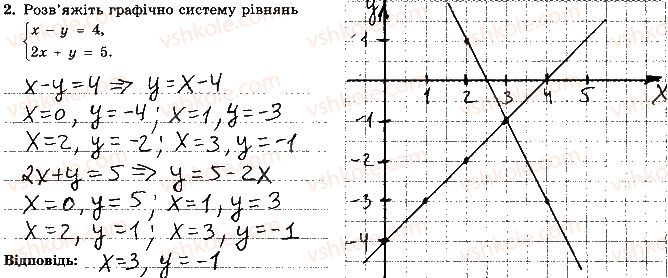 2. Розв'яжіть графічно систему рівнянь
x − y = 4,
2x + y = 5.
x-y=4 ⇒ y=x-4
x=0, y=-4; x=1, y=-3
x=2, y=-2; x=3, y=-1
2x+y=5 ⇒ y=5-2x
x=0, y=5; x=1, y=3
x=2, y=1; x=3, y=-1
Відповідь: x=3, y=-1
y
1
1 2 3 4 5 x
-1
-2
-3
-4